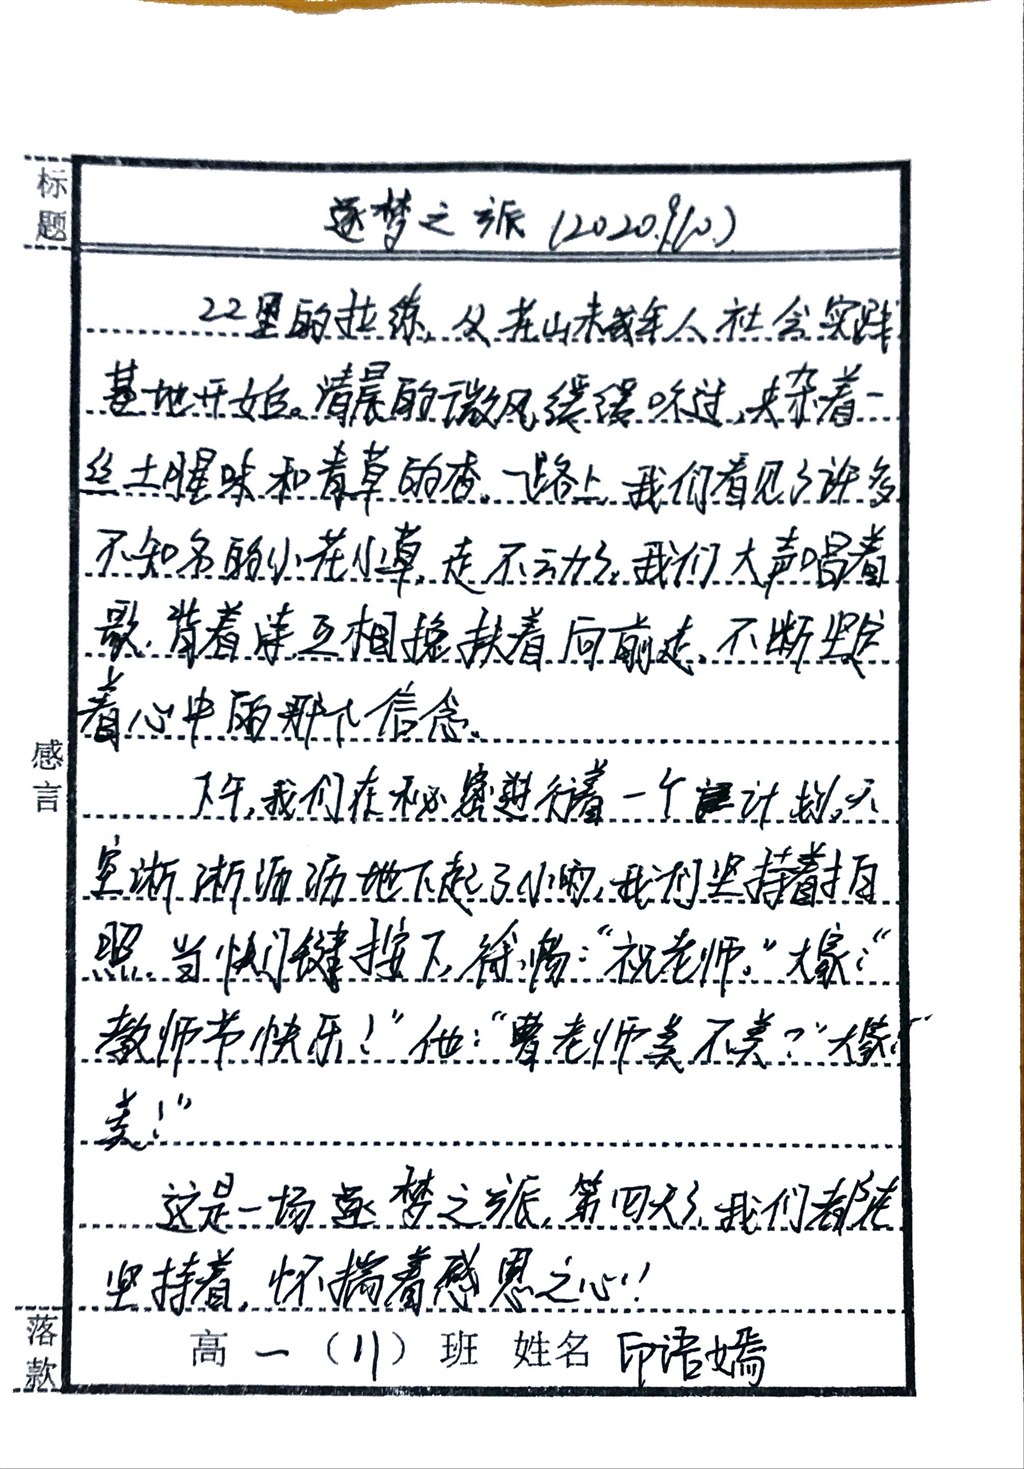 标题
逐梦之旅(2020.9.10.)
22里的拉练,从茅山未成年人社会实践
基地开始。清晨的微风缓缓吹过,夹杂着一
丝土腥味和青草的香。一路上,我们看见了许多
不知名的小花小草,走不动了,我们大声唱着
歌,背着 互相搀扶着向前走,不断坚定
着心中的那个信念。
下午,我们在秘密进行着一个计划。天
空淅淅沥沥地下起了小雨,我们坚持着拍
照。当快门键按下,徐畅:“祝老师。”大家:“
教师节快乐!”他:“曹老师美不美?”大家:“
美!”
这是一场逐梦之旅,第四天了,我们都在
坚持着,怀揣着感恩之心!
感言
落款
高一(11)班 姓名 印语嫣